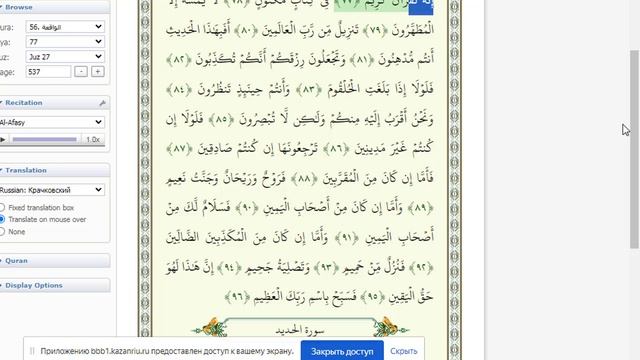 Browse
ura: 56. الواقعة
ya: 77
uz: Juz 27
age: 537
Recitation
Al-Afasy
1.0x
Translation
Russian: Крачковский
Fixed translation box
Translate on mouse over
None
Quran
Display Options
إِنَّهُ لَقُرْآنٌ كَرِيمٌ ﴿٧٧﴾ فِي كِتَابٍ مَّكْنُونٍ ﴿٧٨﴾ لَّا يَمَسُّهُ إِلَّا
الْمُطَهَّرُونَ ﴿٧٩﴾ تَنزِيلٌ مِّن رَّبِّ الْعَالَمِينَ ﴿٨٠﴾ أَفَبِهَٰذَا الْحَدِيثِ
أَنتُم مُّدْهِنُونَ ﴿٨١﴾ وَتَجْعَلُونَ رِزْقَكُمْ أَنَّكُمْ تُكَذِّبُونَ ﴿٨٢﴾
فَلَوْلَا إِذَا بَلَغَتِ الْحُلْقُومَ ﴿٨٣﴾ وَأَنتُمْ حِينَئِذٍ تَنظُرُونَ ﴿٨٤﴾
وَنَحْنُ أَقْرَبُ إِلَيْهِ مِنكُمْ وَلَٰكِن لَّا تُبْصِرُونَ ﴿٨٥﴾ فَلَوْلَا إِن
كُنتُمْ غَيْرَ مَدِينِينَ ﴿٨٦﴾ تَرْجِعُونَهَا إِن كُنتُمْ صَادِقِينَ ﴿٨٧﴾
فَأَمَّا إِن كَانَ مِنَ الْمُقَرَّبِينَ ﴿٨٨﴾ فَرَوْحٌ وَرَيْحَانٌ وَجَنَّتُ نَعِيمٍ
﴿٨٩﴾ وَأَمَّا إِن كَانَ مِنْ أَصْحَابِ الْيَمِينِ ﴿٩٠﴾ فَسَلَامٌ لَّكَ مِنْ
أَصْحَابِ الْيَمِينِ ﴿٩١﴾ وَأَمَّا إِن كَانَ مِنَ الْمُكَذِّبِينَ الضَّالِّينَ
﴿٩٢﴾ فَنُزُلٌ مِّنْ حَمِيمٍ ﴿٩٣﴾ وَتَصْلِيَةُ جَحِيمٍ ﴿٩٤﴾ إِنَّ هَٰذَا لَهُوَ
حَقُّ الْيَقِينِ ﴿٩٥﴾ فَسَبِّحْ بِاسْمِ رَبِّكَ الْعَظِيمِ ﴿٩٦﴾
سورة الحديد
Приложению bbb1.kazanriu.ru предоставлен доступ к вашему экрану.
Закрыть доступ
Скрыть